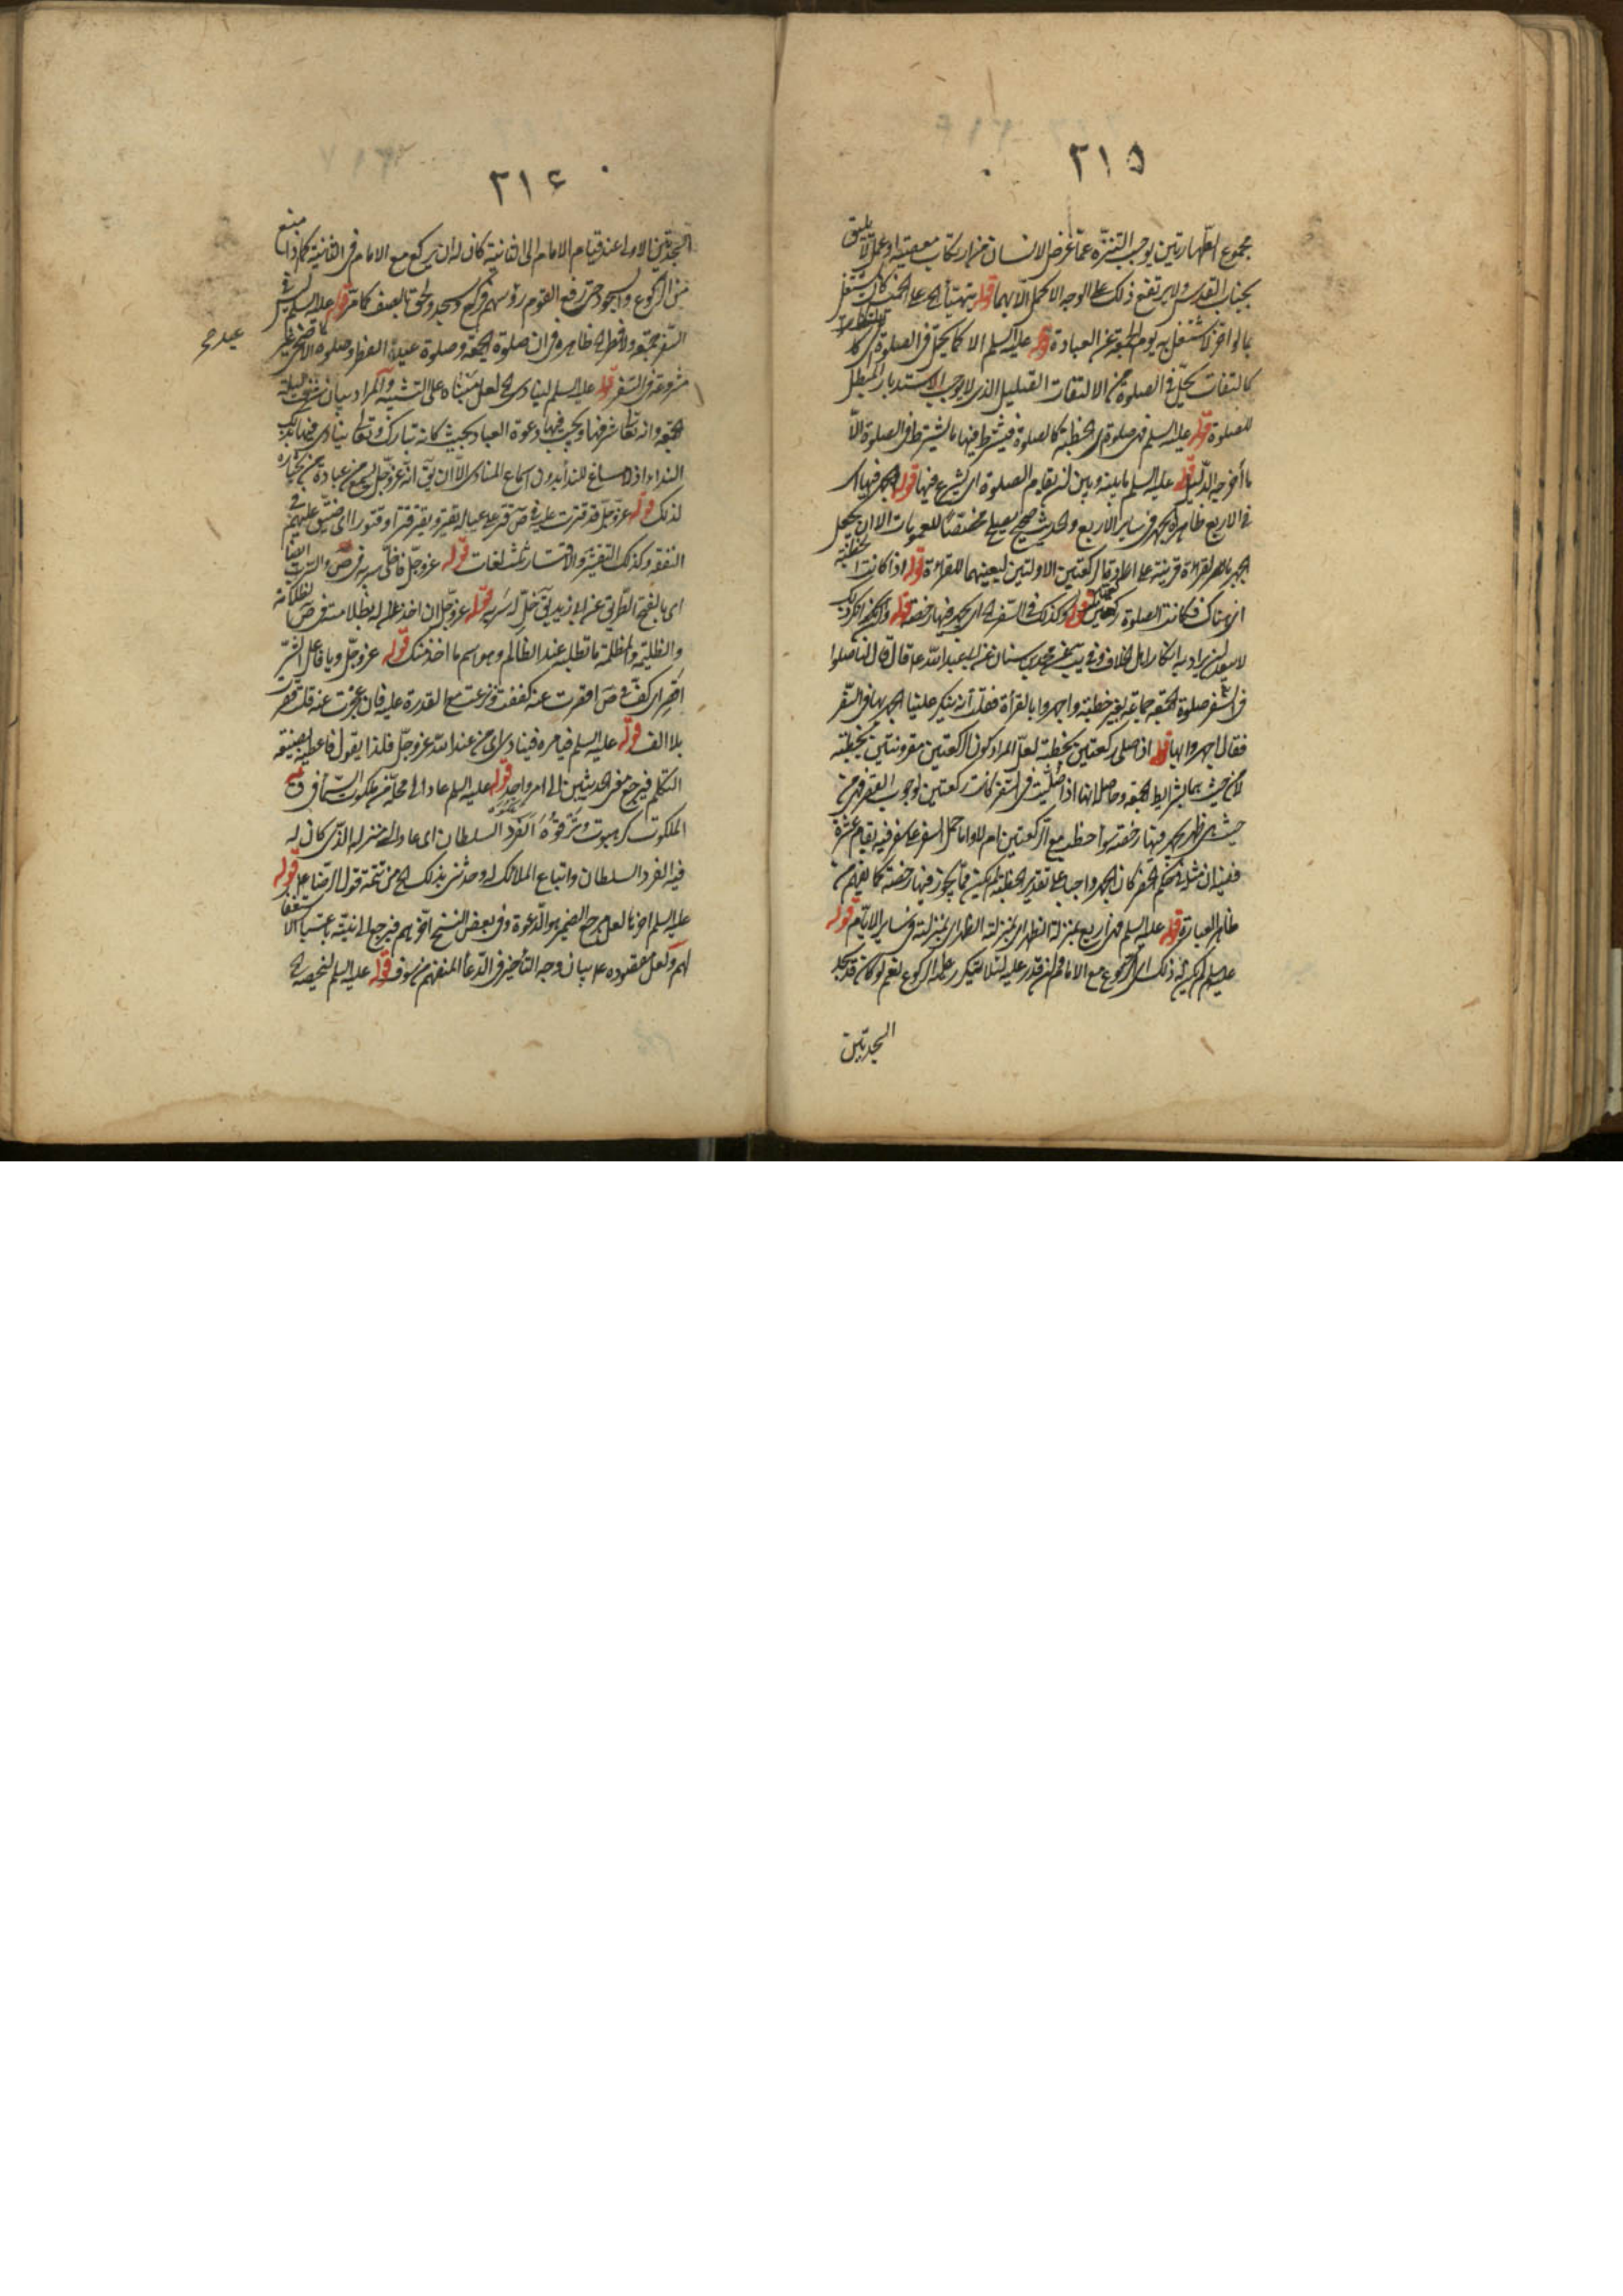 ٢١٥
مجموع الطهارتين يوجب التنزه عما غرض الانسان من ارتكاب معصية او عمل لا يليق
بجناب القدس ولا يرتفع ذلك على الوجه الاكمل الا بهما قوله يتهيأ الخ على الجمعة كانت تشتغل
بالواخر لا تشتغل به يوم الجمعة عن العبادة قوله عليه السلم الا كما يحل في الصلوة اى كل
كالتفات يحل في الصلوة من الالتفات القليل الذى لا يوجب الاستدبار المبطل
للصلوة قوله عليه السلم فهى صلوة اى الخطبة كالصلوة فيشترط فيها ما يشترط في الصلوة الا
ما أخرجه الدليل قوله عليه السلم ما بينه وبين ان تقام الصلوة اى يشرع فيها قوله الجهر فيها اى
في الاربع ظاهره الجهر في ساير الاربع والحديث صحيح يصلح مخصصا للعمومات الا ان يجعل
الجهر بالقراءة قرينة على ارادة الركعتين الاولتين ليعينهما للقراءة قوله اذا كانت الخطبة
اى هناك فكانت الصلوة ركعتين قوله وكذلك في السفر اى يجهر فيها رخصة قوله
لا سوى ان يراد به انكار اهل الخلاف وفي يب عن محمد بن سنان عن ابى عبد الله ع قال قال لنا صلوا
في السفر صلوة الجمعة جماعة بغير خطبة واجهروا بالقرأة فقلت انه ينكر علينا الجهر بها في السفر
فقال اجهروا بها قوله اذا صلى ركعتين بخطبة لعل المراد كون الركعتين مقرونتين بخطبة
لا من حيث بشرايط الجمعة وحاصل انها اذا صليت في السفر كانت ركعتين لوجوب القصر فهى من
حيث هى ظهر يجهر فيها رخصة سواء خطب مع الركعتين ام لا واما حمل السفر على سفر فيه يقام عشرة
ففيه ان مثله في حكم الحضر كان الجهر واجبا على تقدير الخطبة لم يكن مما يجوز فيها رخصة كما يفهم من
ظاهر العبارة قوله عليه السلم فهى اربع بمنزلة الظهر اى بمنزلة الظهر اى بمنزلته في ساير الايام قوله
عليه السلم لم يكن له ذلك اى الركوع مع الامام فمن قدر عليه لئلا يتكرر عليه الركوع نعم لو كان قد سجد
السجدتين
٢١٦
السجدتين الاولى عند قيام الامام الى الثانية كان له ان يركع مع الامام في الثانية كما اذا منع
من الركوع والسجود حتى رفع القوم رؤسهم فركع وسجد ولحق بالصف كما مر قوله عليه السلم ليس في
السفر جمعة ولا فطر الخ ظاهره في ان صلوة الجمعة وصلوة عيد الفطر وصلوة الاضحى غير
مشروعة في السفر قوله عليه السلم لينادى الخ لعل مبناه على التشبيه والمراد بيان شرف ليلة
الجمعة وانه تعالى شرفها ويجيب فيها دعوة العباد بحيث كانه تبارك وتعالى ينادى فيها بذلك
النداء اذ لا مساغ للنداء بدون اسماع المنادى الا ان يق انه عز وجل يسمع من عباده من يختاره
لذلك قوله عز وجل قد قترت عليه في ص قتر على عياله يقتر ويقتر قترا وقتورا اى ضيق عليهم في
النفقه وكذلك التقتير والاقتار ثلث لغات قوله عز وجل فاخلى سربه في ص والسرب ايضا
اى بالفتح الطريق عن ابى زيد يق خل له سربه قوله عز وجل ان اخذ له بظلامته في ص الظلامة
والظليمة والمظلمة ما تطلبه عند الظالم وهو اسم ما اخذ منك قوله عز وجل ويا فاعل الشر
اقصر اى كف في ص اقصرت عنه كففت ونزعت مع القدرة عليه فان عجزت عنه قلت قصرت
بلا الف قوله عليه السلم فيامره فينادى اى من عند الله عز وجل فلذا يقول فاعطيه بصيغة
التكلم فيرجع مغزى الحديثين الى امر واحد قوله عليه السلم عاد الى محله من ملكوت السماء في ق
الملكوت كرهبوت وترقوة العز والسلطان اى عاد الى منزله الذى كان له
فيه العز والسلطان واتباع الملائك له وحدثنى بذلك الخ من تتمة قول الرضا ع قوله
عليه السلم اخرنا لعل مرجع الضمير هو الدعوة وفي بعض النسخ اخرهم فيرجع الى بنيه باعتبار الاستغفار
لهم ولعل مقصوده ع بيان وجه التأخير في الدعاء المنفهم من سوف قوله عليه السلم
عيد صح